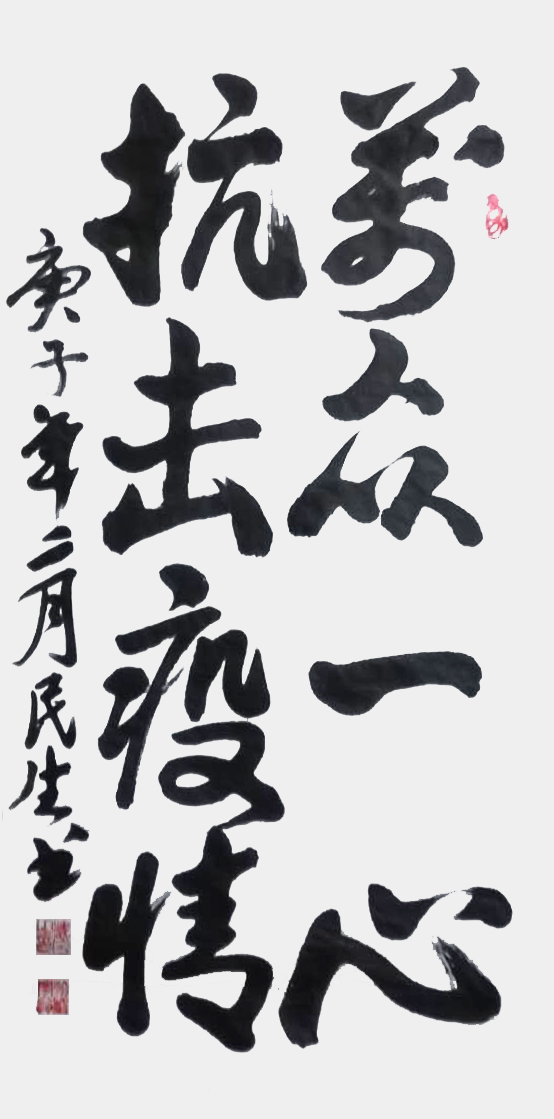 萬众一心
抗击疫情
庚子年二月民生书